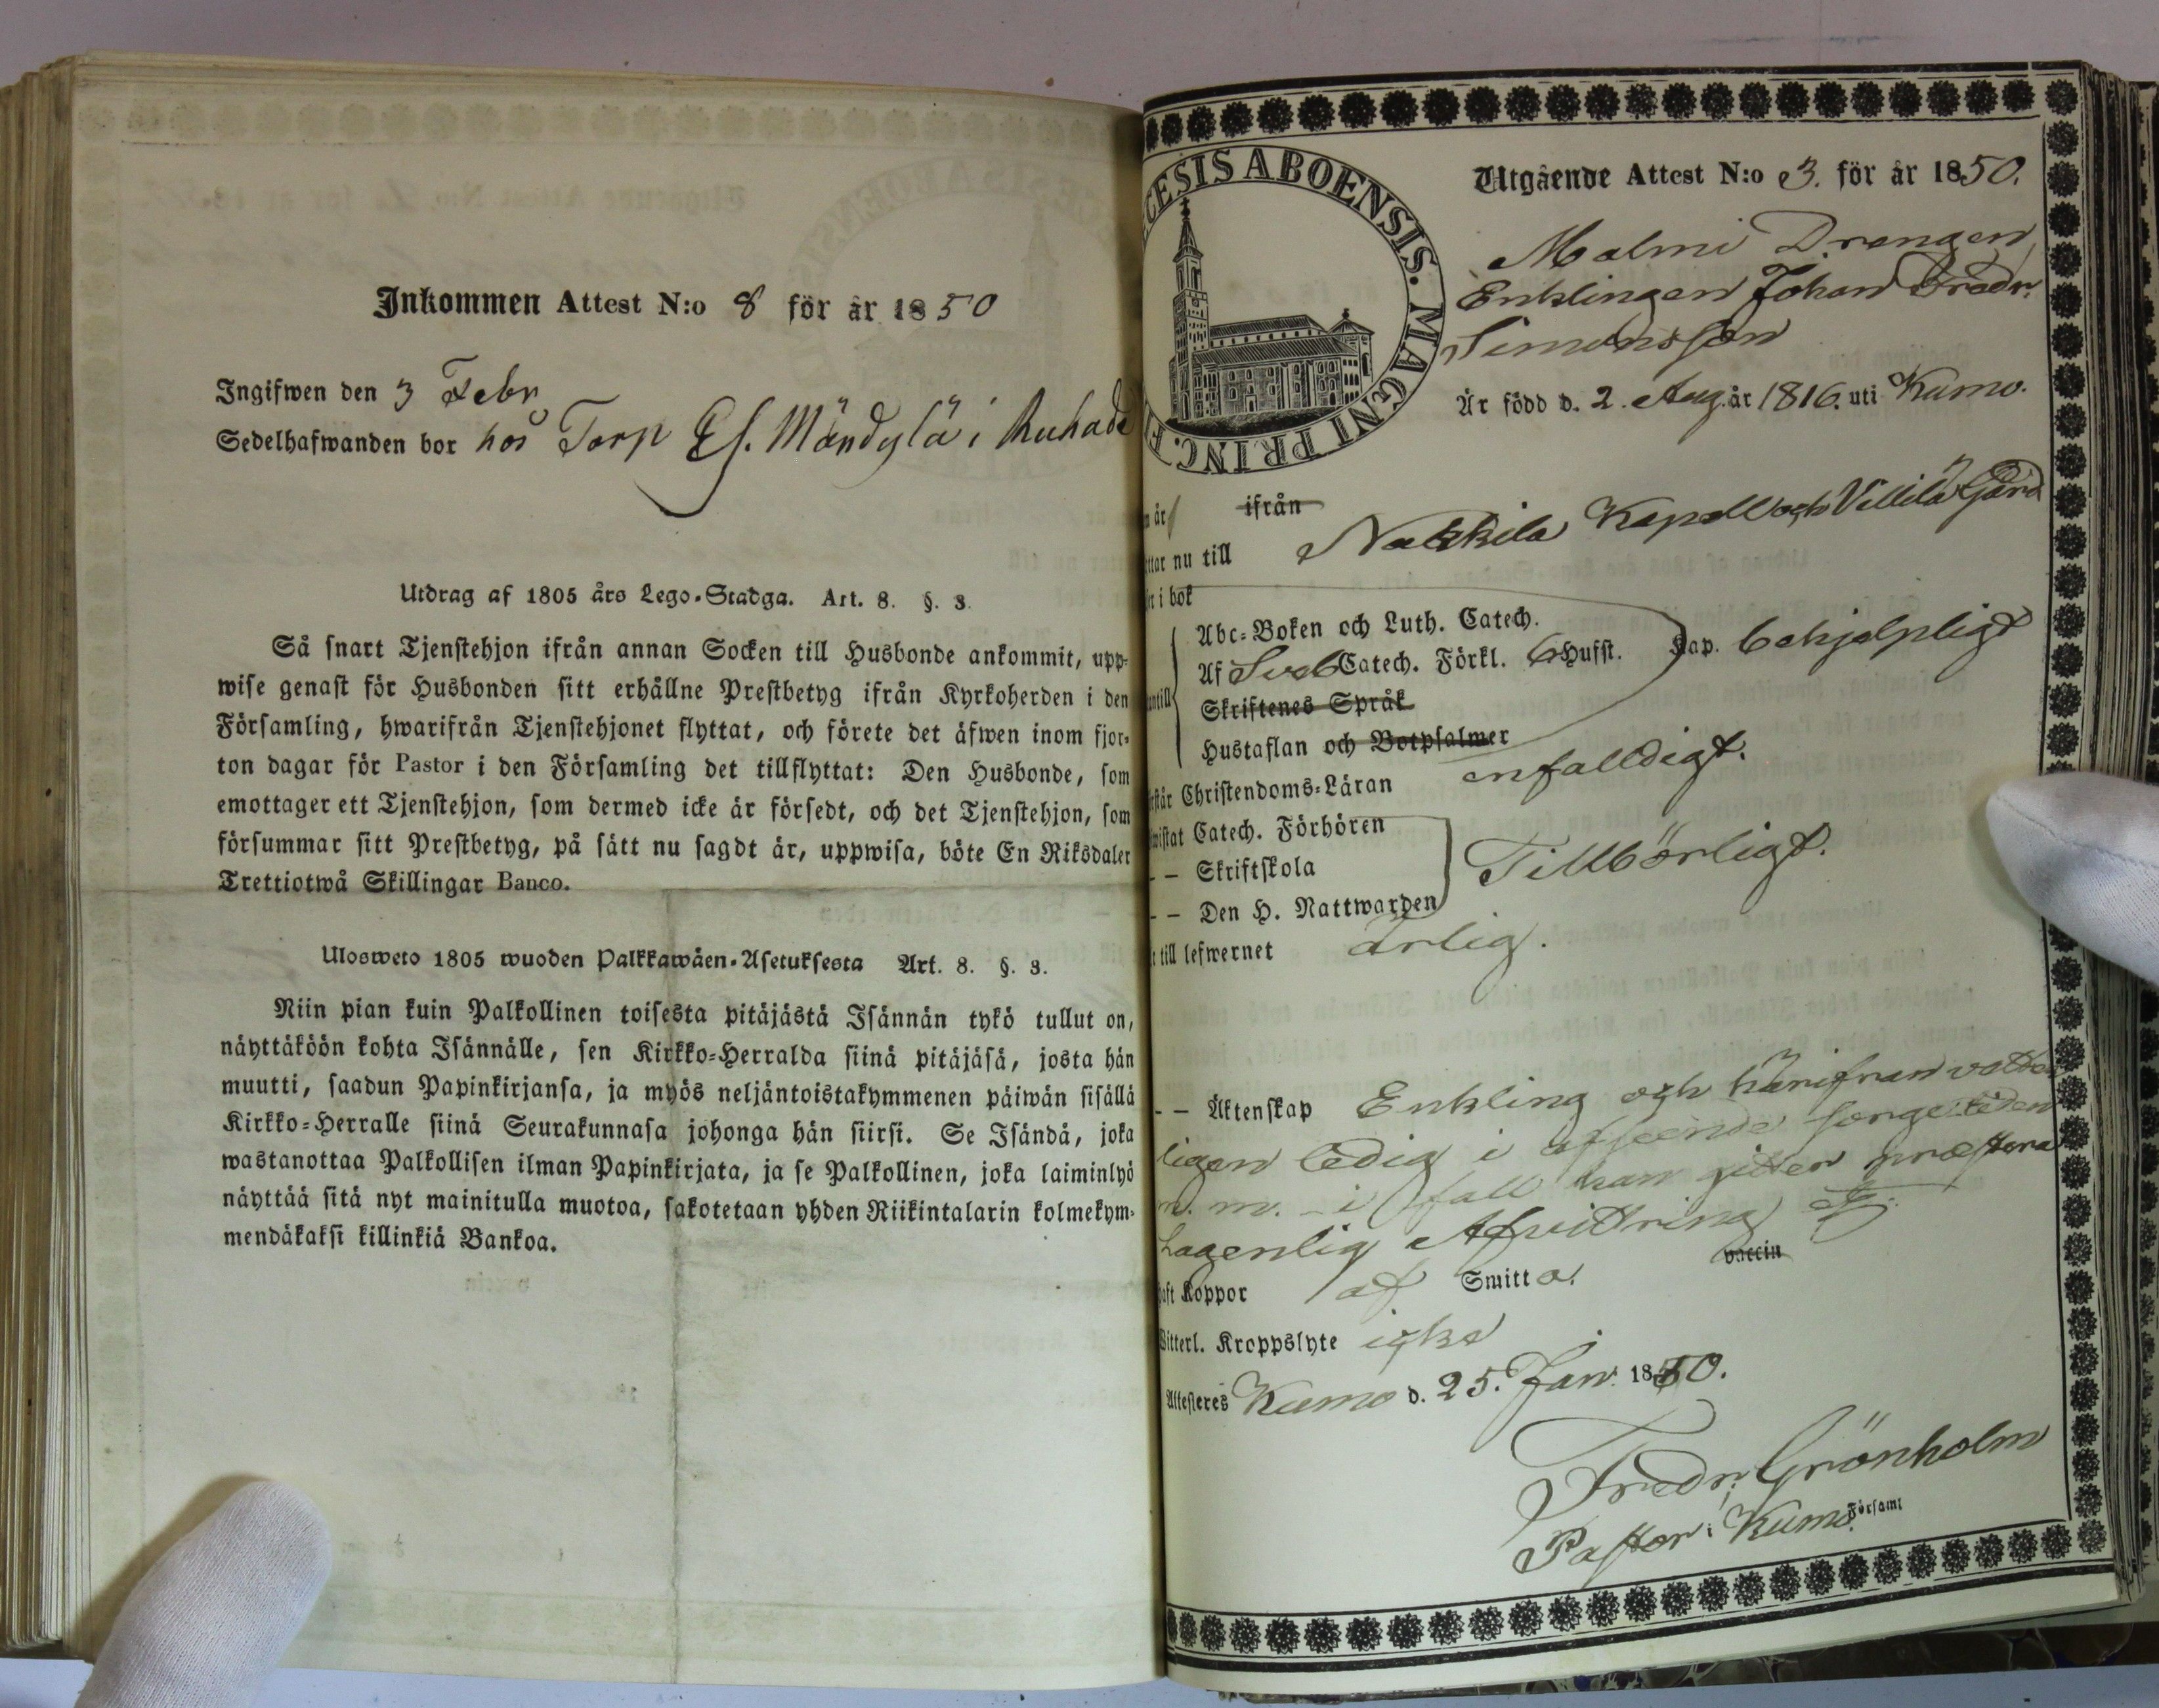 Inkommen Attest N:o 8 för år 1850
Ingifwen den 3 Febr
Sedelhafwanden bor hos Torp Es. Mändylä i Ruhade
Utdrag af 1805 års Lego-Stadga. Art. 8. §. 3.
Så snart Tjenstehjon ifrån annan Socken till Husbonde ankommit, upp-
wise genast för Husbonden sitt erhållne Prestbetyg ifrån Kyrkoherden i den
Församling, hwarifrån Tjenstehjonet flyttat, och förete det äfwen inom fjor-
ton dagar för Pastor i den Församling det tillflyttat: Den Husbonde, som
emottager ett Tjenstehjon, som dermed icke är försedt, och det Tjenstehjon, som
försummar sitt Prestbetyg, på sätt nu sagdt är, uppwisa, böte En Riksdaler
Trettiotwå Skillingar Banco.
Ulosweto 1805 wuoden Palkkawäen-Asetuksesta Art. 8. §. 3.
Niin pian kuin Palkollinen toisesta pitäjästä Isännän tykö tullut on,
näyttäköön kohta Isännälle, sen Kirkko-Herralda siinä pitäjäsä, josta hän
muutti, saadun Papinkirjansa, ja myös neljäntoistakymmenen päiwän sisällä
Kirkko-Herralle siinä Seurakunnasa johonga hän siirsi. Se Isändä, joka
wastanottaa Palkollisen ilman Papinkirjata, ja se Palkollinen, joka laiminlyö
näyttää sitä nyt mainitulla muotoa, sakotetaan yhden Riikintalarin kolmekym-
mendäkaksi killinkiä Bankoa.
ECESIS ABOENSIS. MAGNI PRINC. F
Utgående Attest N:o 3. för år 1850.
Malmi Drengen
Enklingen Johan Fredr.
Simonsson
Är född d. 2. Aug. år 1816. uti Kumo.
år ifrån
ttar nu till Nakkila Kapell och Villilä Gård
i bok
Abc-Boken och Luth. Catech.
Af Sveb Catech. Förkl. 6 Hufst. Kap. behjelpligt
untill
Skriftenes Språk
Hustaflan och Botpsalmer
rstår Christendoms-Läran enfalldigt.
wistat Catech. Förhören
- - Skriftskola Tillbörligt.
- - Den H. Nattwarden
till lefwernet ärlig.
- - Äktenskap Enkling och härifran vatter
ligen ledig i afseende sorgetiden
m. m. - i fall han gitter præstera
lagenlig Afvittring
haft Koppor af Smitta. vaccin
Witterl. Kroppslyte icke
Attesteres Kumo d. 25. Jan. 1850.
Fredr. Grönholm
Pastor i Kumo Församl